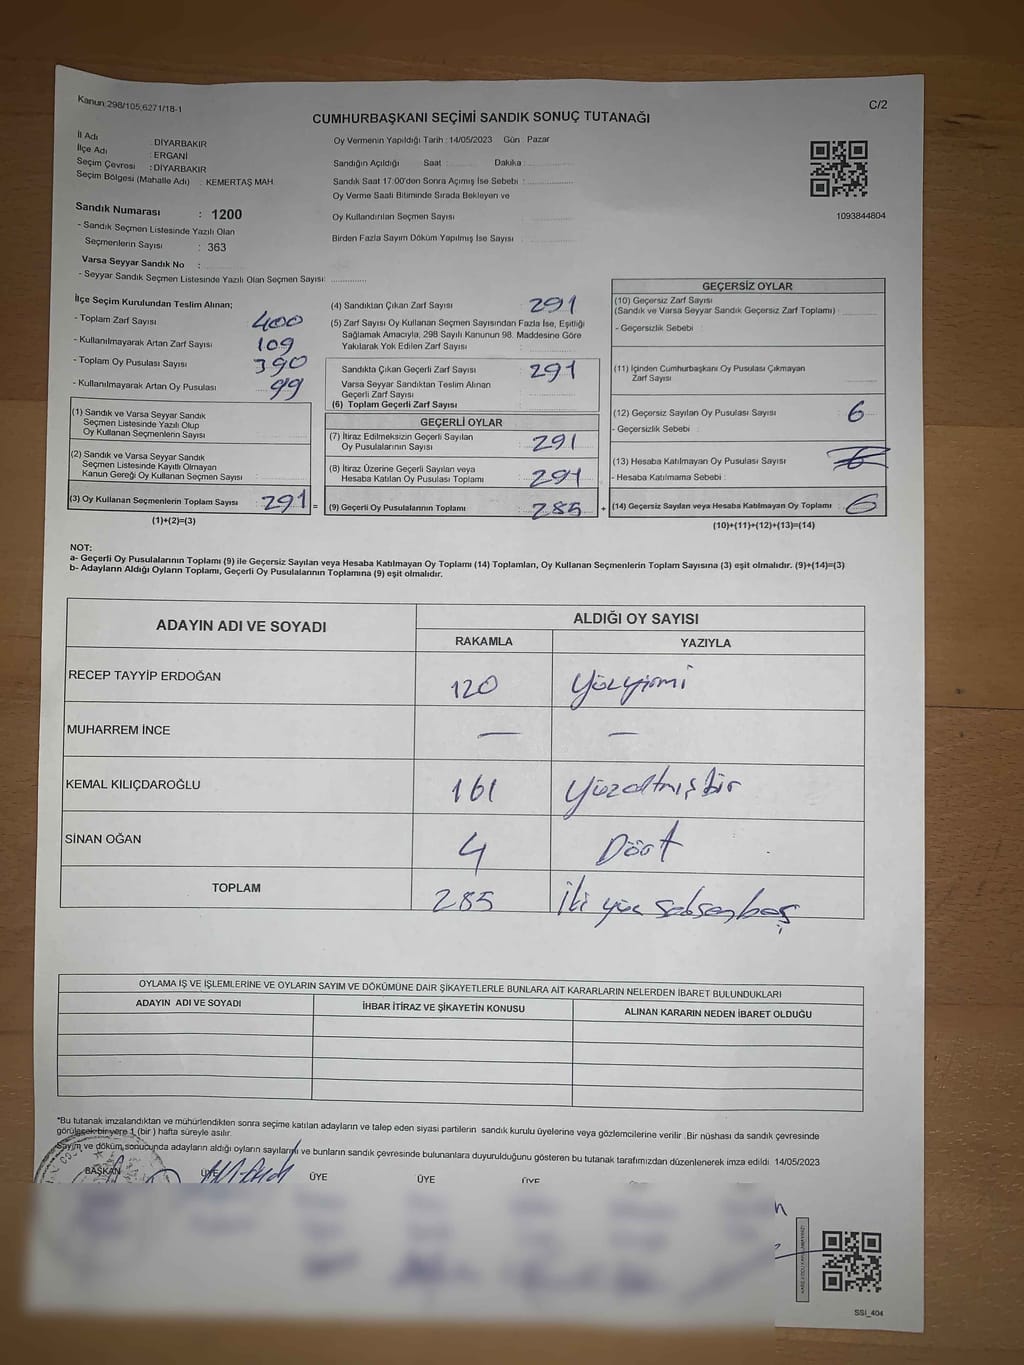 Kanun:298/105;6271/18-1
C/2
CUMHURBAŞKANI SEÇİMİ SANDIK SONUÇ TUTANAĞI
İl Adı : DİYARBAKIR
İlçe Adı : ERGANİ
Seçim Çevresi : DİYARBAKIR
Seçim Bölgesi (Mahalle Adı) : KEMERTAŞ MAH.
Sandık Numarası : 1200
- Sandık Seçmen Listesinde Yazılı Olan
Seçmenlerin Sayısı : 363
Varsa Seyyar Sandık No :
- Seyyar Sandık Seçmen Listesinde Yazılı Olan Seçmen Sayısı:
Oy Vermenin Yapıldığı Tarih : 14/05/2023 Gün Pazar
Sandığın Açıldığı Saat : Dakika :
Sandık Saat 17:00'den Sonra Açımış İse Sebebi :
Oy Verme Saati Bitiminde Sırada Bekleyen ve
Oy Kullandırılan Seçmen Sayısı
Birden Fazla Sayım Döküm Yapılmış İse Sayısı
1093844804
İlçe Seçim Kurulundan Teslim Alınan;
- Toplam Zarf Sayısı 400
- Kullanılmayarak Artan Zarf Sayısı 109
- Toplam Oy Pusulası Sayısı 390
- Kullanılmayarak Artan Oy Pusulası 99
(1) Sandık ve Varsa Seyyar Sandık
Seçmen Listesinde Yazılı Olup
Oy Kullanan Seçmenlerin Sayısı
(2) Sandık ve Varsa Seyyar Sandık
Seçmen Listesinde Kayıtlı Olmayan
Kanun Gereği Oy Kullanan Seçmen Sayısı
(3) Oy Kullanan Seçmenlerin Toplam Sayısı : 291 =
(1)+(2)=(3)
(4) Sandıktan Çıkan Zarf Sayısı 291
(5) Zarf Sayısı Oy Kullanan Seçmen Sayısından Fazla İse, Eşitliği
Sağlamak Amacıyla, 298 Sayılı Kanunun 98. Maddesine Göre
Yakılarak Yok Edilen Zarf Sayısı
Sandıkta Çıkan Geçerli Zarf Sayısı 291
Varsa Seyyar Sandıktan Teslim Alınan
Geçerli Zarf Sayısı
(6) Toplam Geçerli Zarf Sayısı
GEÇERLİ OYLAR
(7) İtiraz Edilmeksizin Geçerli Sayılan
Oy Pusulalarının Sayısı 291
(8) İtiraz Üzerine Geçerli Sayılan veya
Hesaba Katılan Oy Pusulası Toplamı 291
(9) Geçerli Oy Pusulalarının Toplamı : 285 +
GEÇERSİZ OYLAR
(10) Geçersiz Zarf Sayısı
(Sandık ve Varsa Seyyar Sandık Geçersiz Zarf Toplamı)
- Geçersizlik Sebebi :
(11) İçinden Cumhurbaşkanı Oy Pusulası Çıkmayan
Zarf Sayısı
(12) Geçersiz Sayılan Oy Pusulası Sayısı 6
- Geçersizlik Sebebi :
(13) Hesaba Katılmayan Oy Pusulası Sayısı
- Hesaba Katılmama Sebebi :
(14) Geçersiz Sayılan veya Hesaba Katılmayan Oy Toplamı : 6
(10)+(11)+(12)+(13)=(14)
NOT:
a- Geçerli Oy Pusulalarının Toplamı (9) ile Geçersiz Sayılan veya Hesaba Katılmayan Oy Toplamı (14) Toplamları, Oy Kullanan Seçmenlerin Toplam Sayısına (3) eşit olmalıdır. (9)+(14)=(3)
b- Adayların Aldığı Oyların Toplamı, Geçerli Oy Pusulalarının Toplamına (9) eşit olmalıdır.
ADAYIN ADI VE SOYADI ALDIĞI OY SAYISI
RAKAMLA YAZIYLA
RECEP TAYYİP ERDOĞAN 120 Yüzyirmi
MUHARREM İNCE — —
KEMAL KILIÇDAROĞLU 161 yüzaltmışbir
SİNAN OĞAN 4 Dört
TOPLAM 285 İki yüz seksenbeş
OYLAMA İŞ VE İŞLEMLERİNE VE OYLARIN SAYIM VE DÖKÜMÜNE DAİR ŞİKAYETLERLE BUNLARA AİT KARARLARIN NELERDEN İBARET BULUNDUKLARI
ADAYIN ADI VE SOYADI İHBAR İTİRAZ VE ŞİKAYETİN KONUSU ALINAN KARARIN NEDEN İBARET OLDUĞU
*Bu tutanak imzalandıktan ve mühürlendikten sonra seçime katılan adayların ve talep eden siyasi partilerin sandık kurulu üyelerine veya gözlemcilerine verilir. Bir nüshası da sandık çevresinde
görülecek bir yere 1 (bir) hafta süreyle asılır.
Sayım ve döküm sonucunda adayların aldığı oyların sayılarını ve bunların sandık çevresinde bulunanlara duyurulduğunu gösteren bu tutanak tarafımızdan düzenlenerek imza edildi. 14/05/2023
BAŞKAN ÜYE ÜYE ÜYE ÜYE
SSI_404